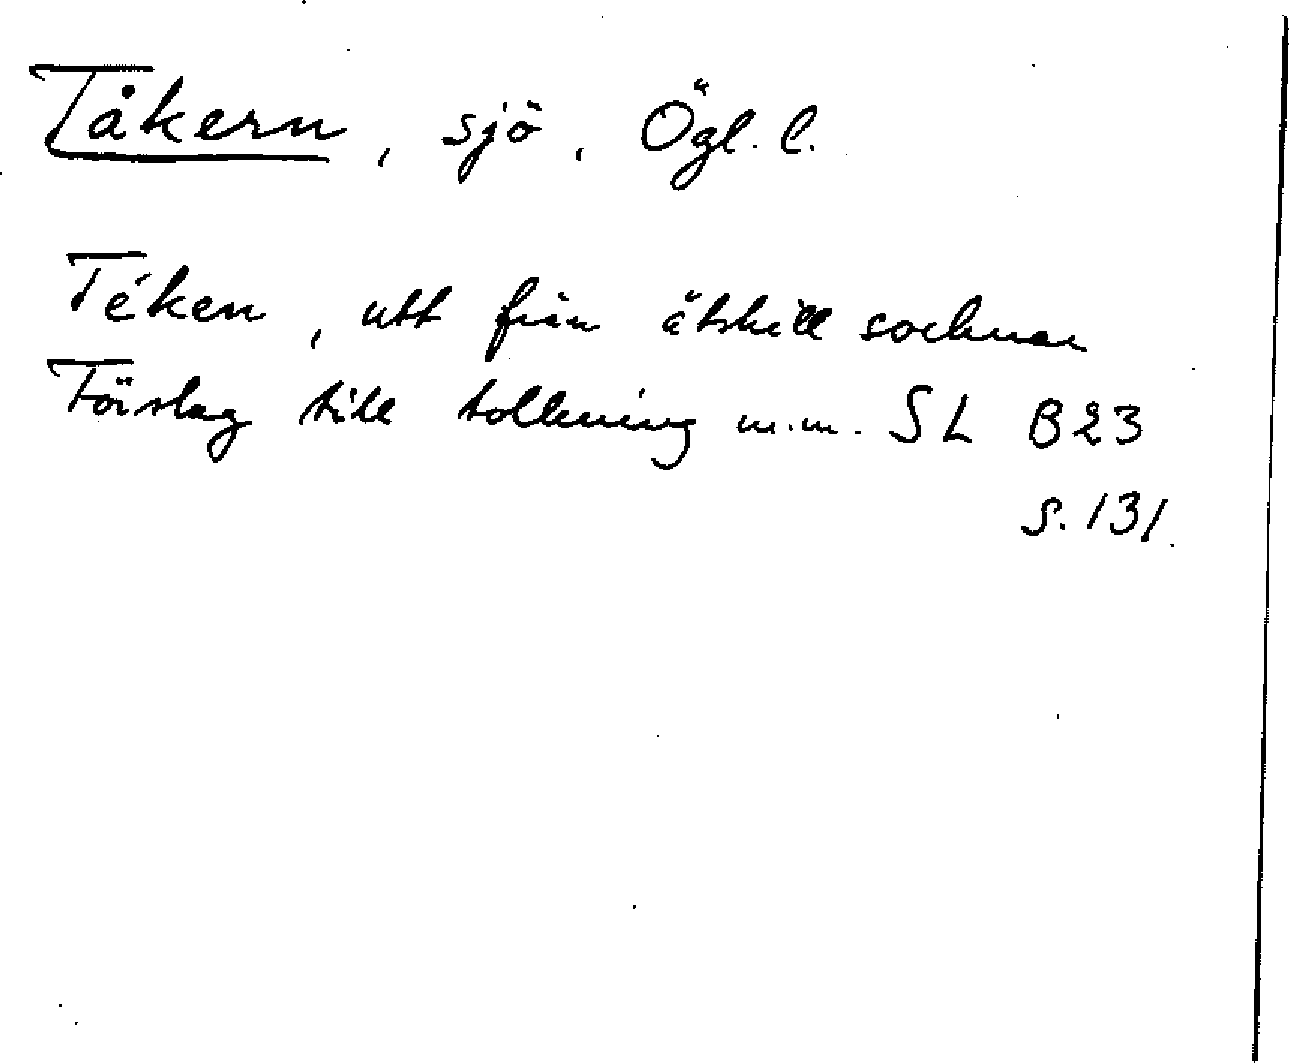 Tåkern, sjö, Ögl. l.
Téken, utt från åtskill socknar
Förslag till tolkning m.m. SL B23
s. 131